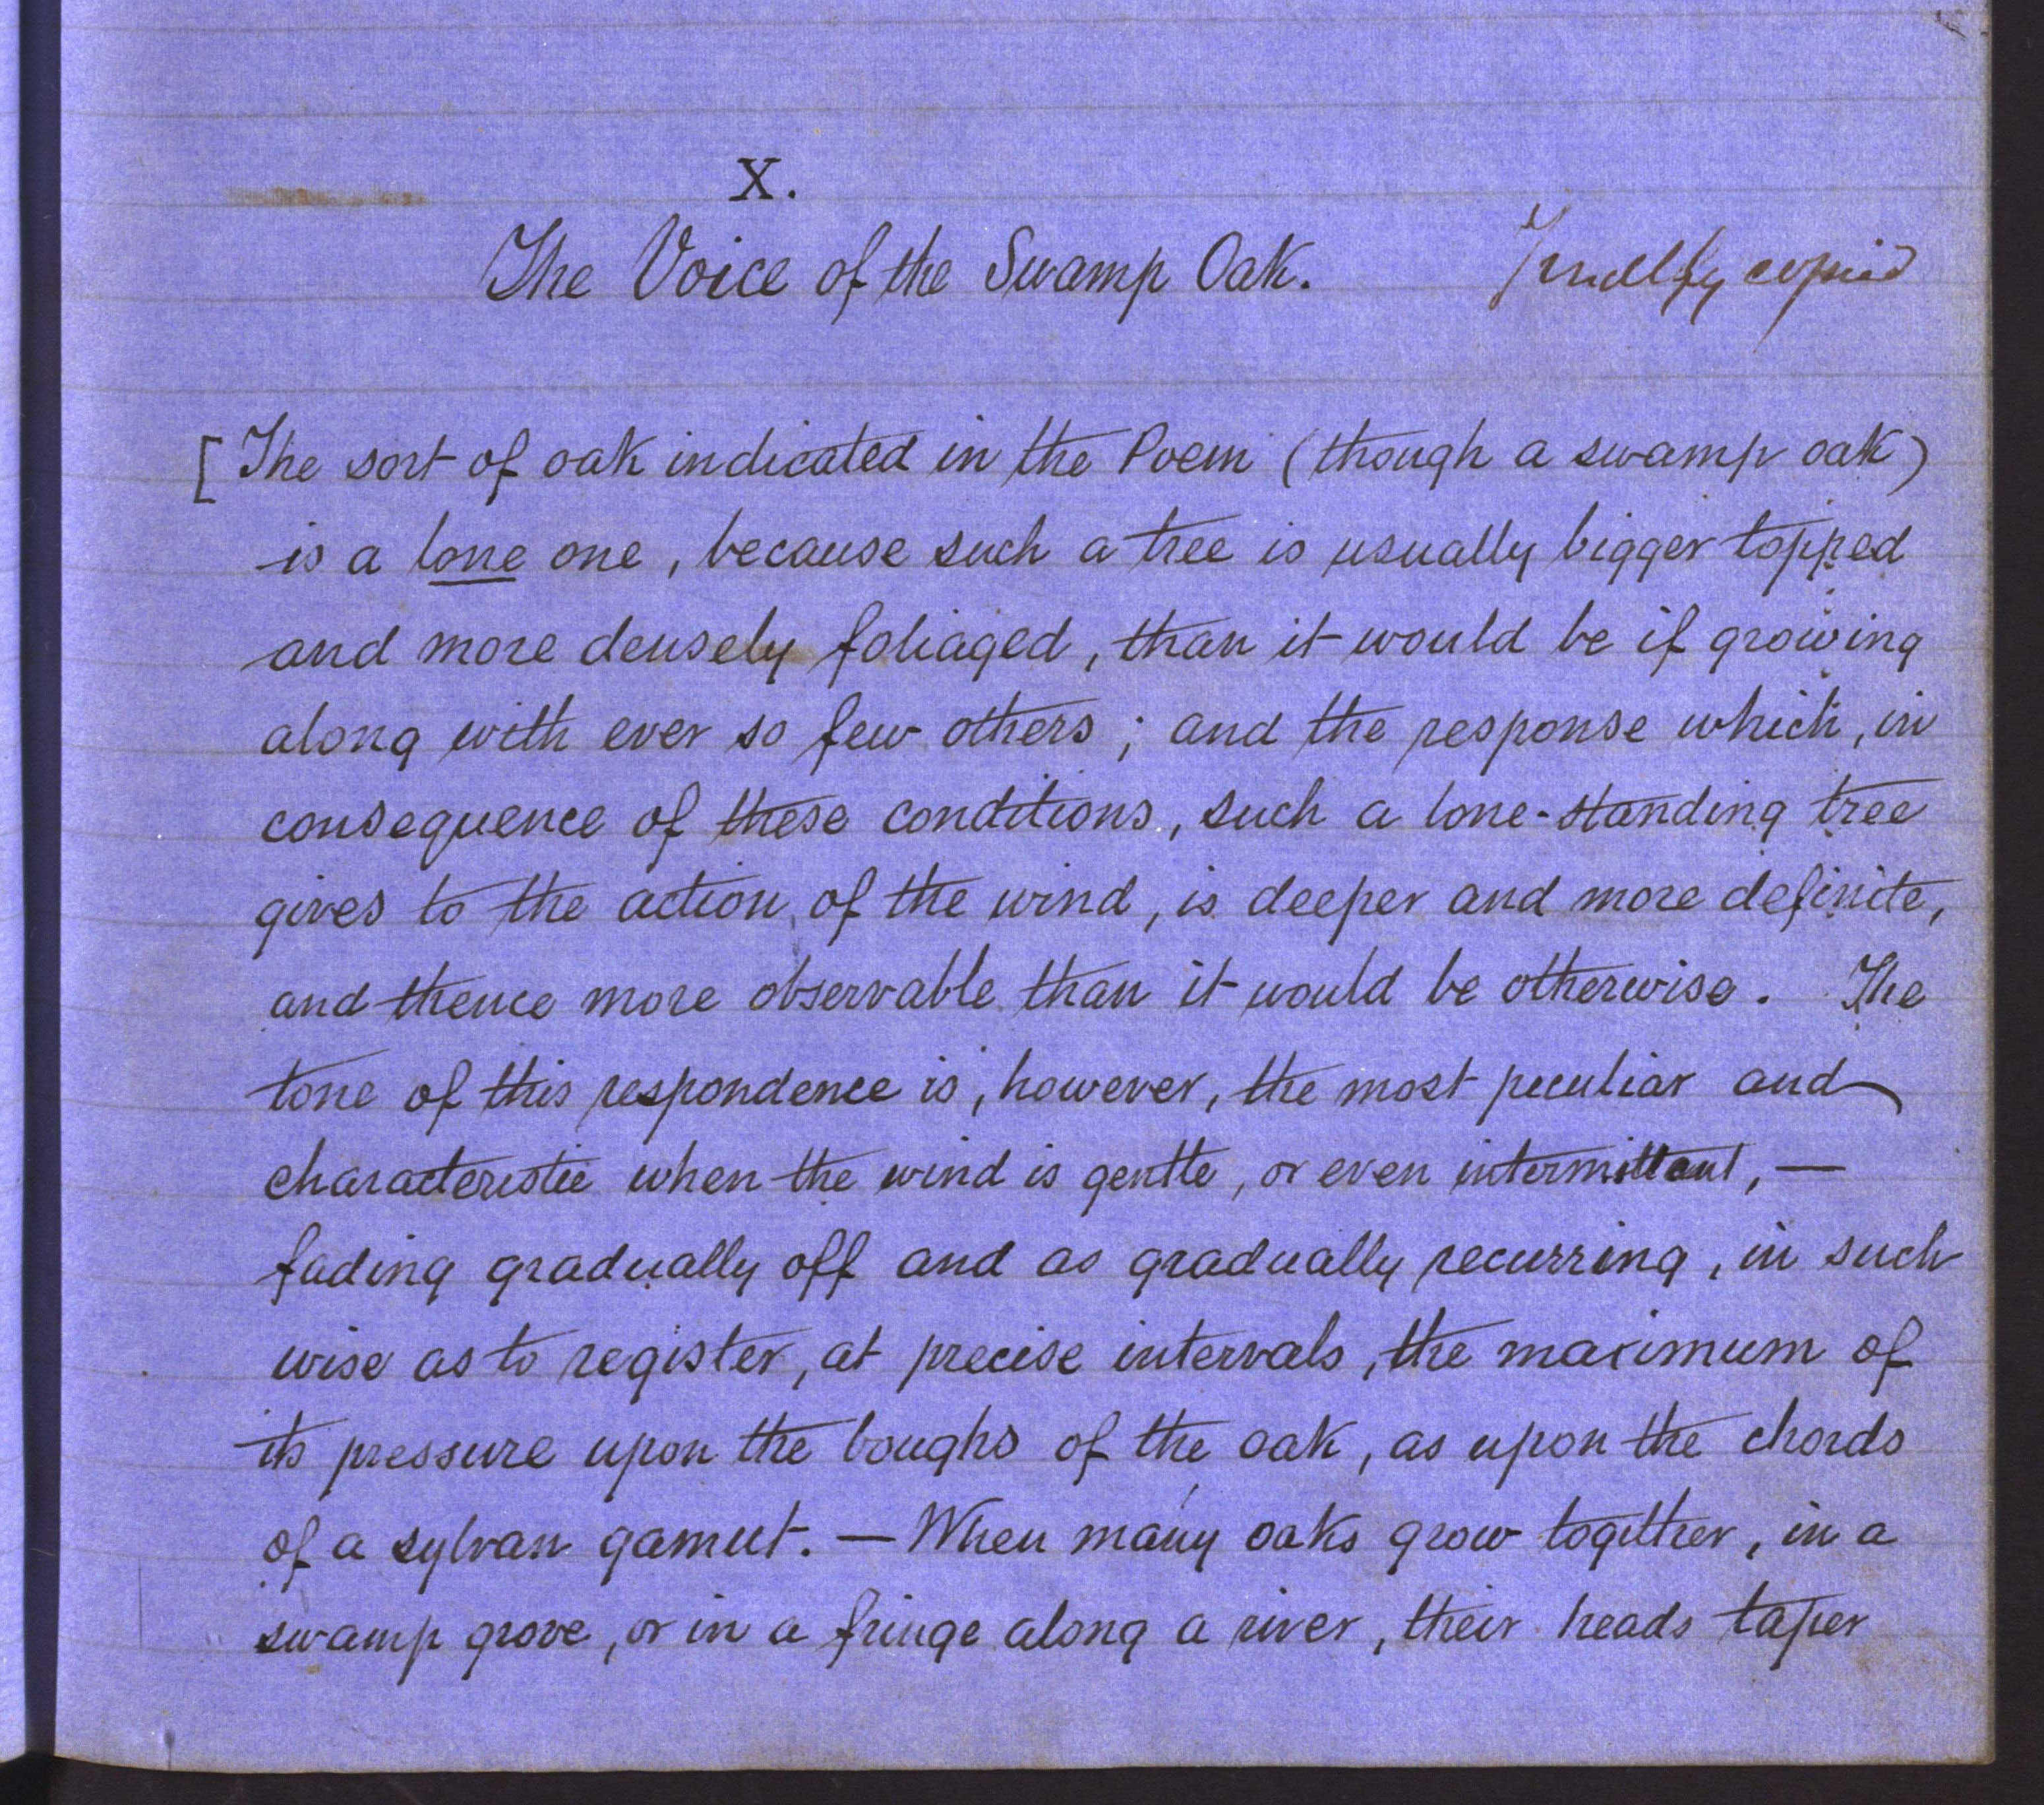 X.
The Voice of the Swamp Oak.
copied
[The sort of oak indicated in the Poem (though a swamp oak)
is a lone one, because such a tree is usually bigger topped
and more densely foliaged, than it would be if growing
along with ever so few others; and the response which, in
consequence of these conditions, such a lone-standing tree
gives to the action of the wind, is deeper and more definite,
and thence more observable than it would be otherwise. The
tone of this respondence is, however, the most peculiar and
characteristic when the wind is gentle, or even intermittent, —
fading gradually off and as gradually recurring, in such
wise as to register, at precise intervals, the maximum of
its pressure upon the boughs of the oak, as upon the chords
of a sylvan gamut. — When many oaks grow together, in a
swamp grove, or in a fringe along a river, their heads taper